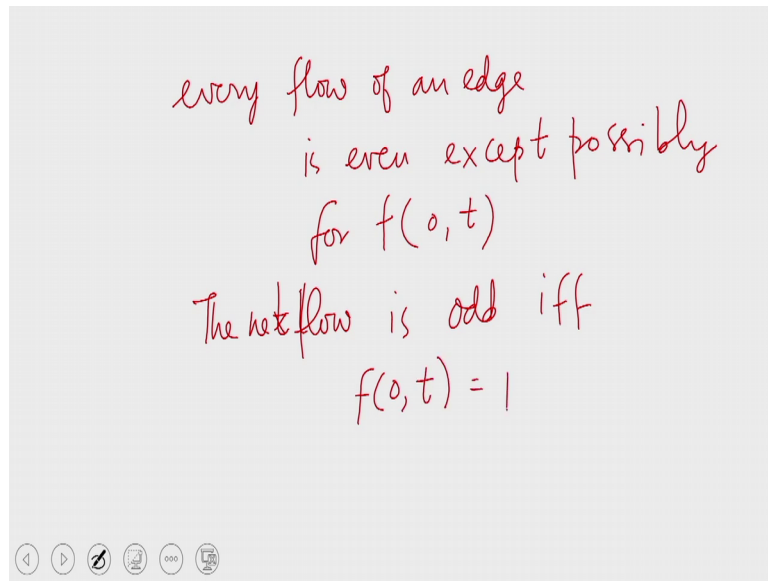 every flow of an edge
is even except possibly
for f(0,t)
The net flow is odd iff
f(0,t) = 1